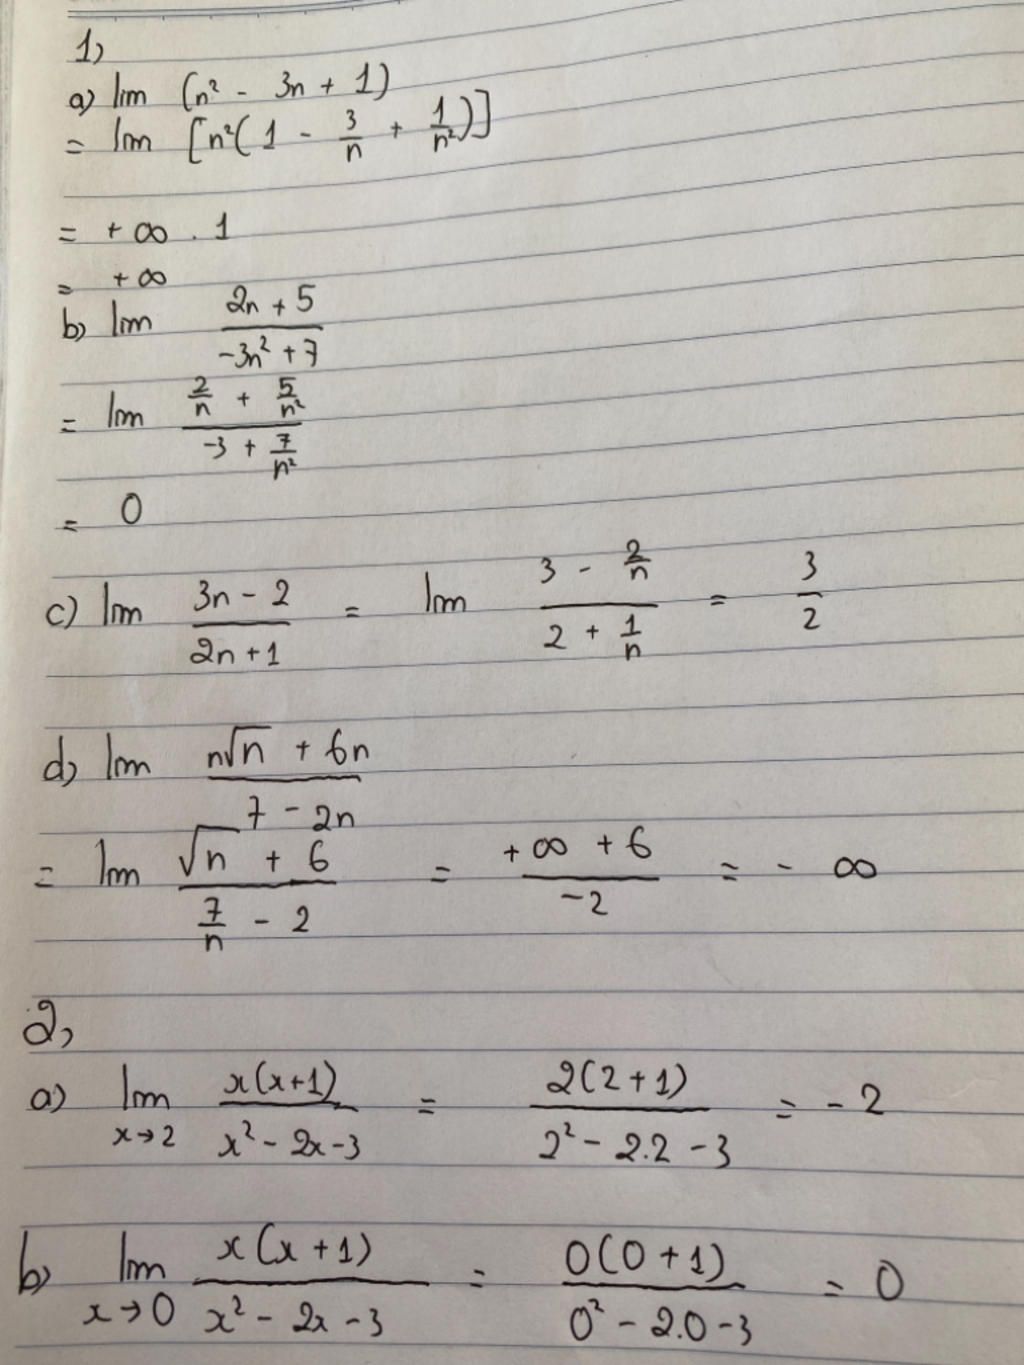 1)
a) lim (n² - 3n + 1)
= lim [n²(1 - 3/n + 1/n²)]
= +∞ . 1
= +∞
b) lim (2n + 5)/(-3n² + 7)
= lim (2/n + 5/n²)/(-3 + 7/n²)
= 0
c) lim (3n - 2)/(2n + 1) = lim (3 - 2/n)/(2 + 1/n) = 3/2
d) lim (n√n + 6n)/(7 - 2n)
= lim (√n + 6)/(7/n - 2) = (+∞ + 6)/(-2) = - ∞
2)
a) lim x→2 x(x+1)/(x² - 2x - 3) = 2(2+1)/(2² - 2.2 - 3) = -2
b) lim x→0 x(x+1)/(x² - 2x - 3) = 0(0+1)/(0² - 2.0 - 3) = 0